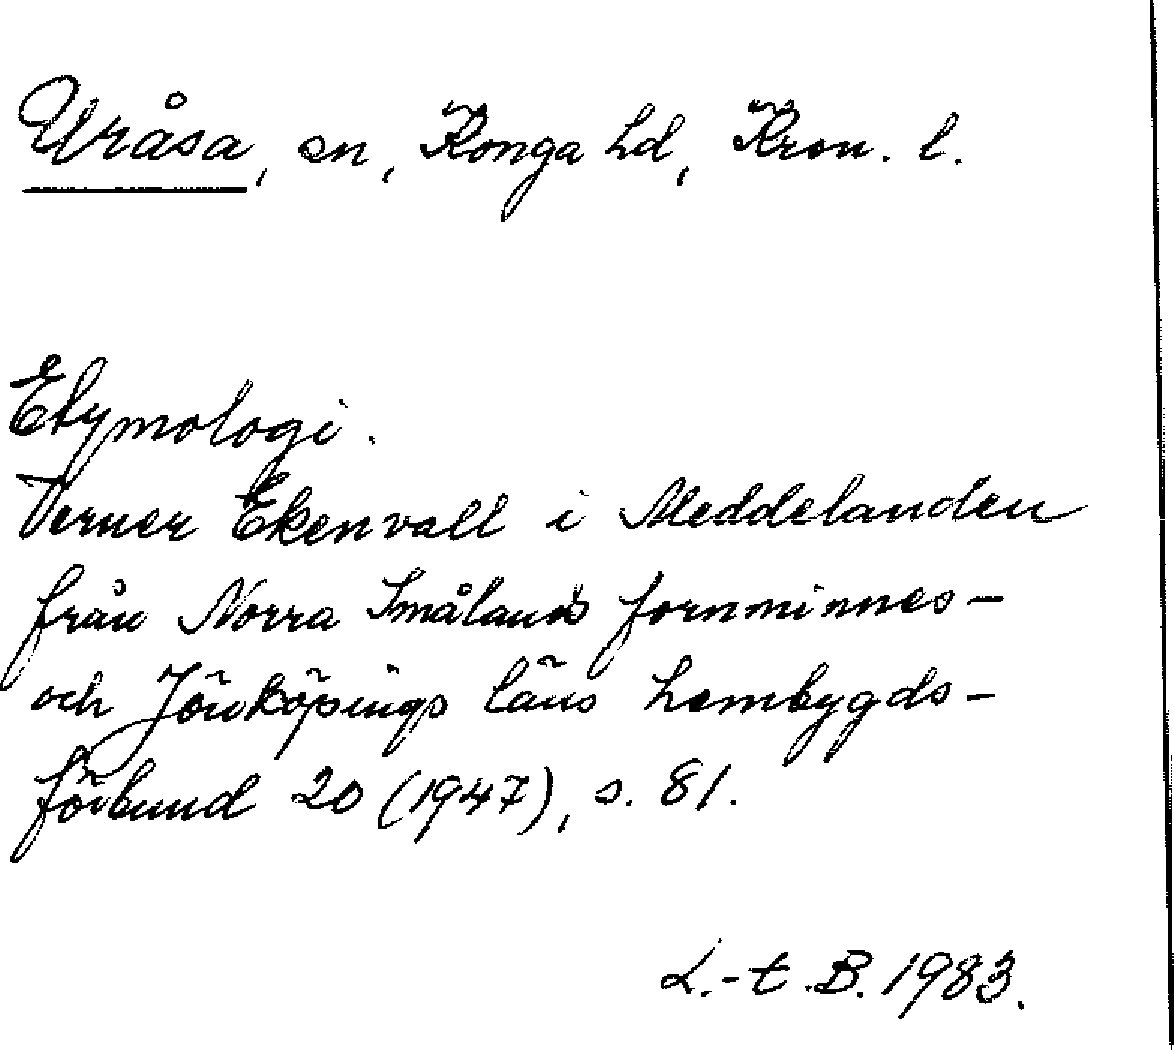 Uråsa, sn, Konga hd, Kron. l.
Etymologi.
Verner Ekenvall i Meddelanden
från Norra Smålands fornminnes-
och Jönköpings läns hembygds-
förbund 20 (1947), s. 81.
L.-t. B. 1983.